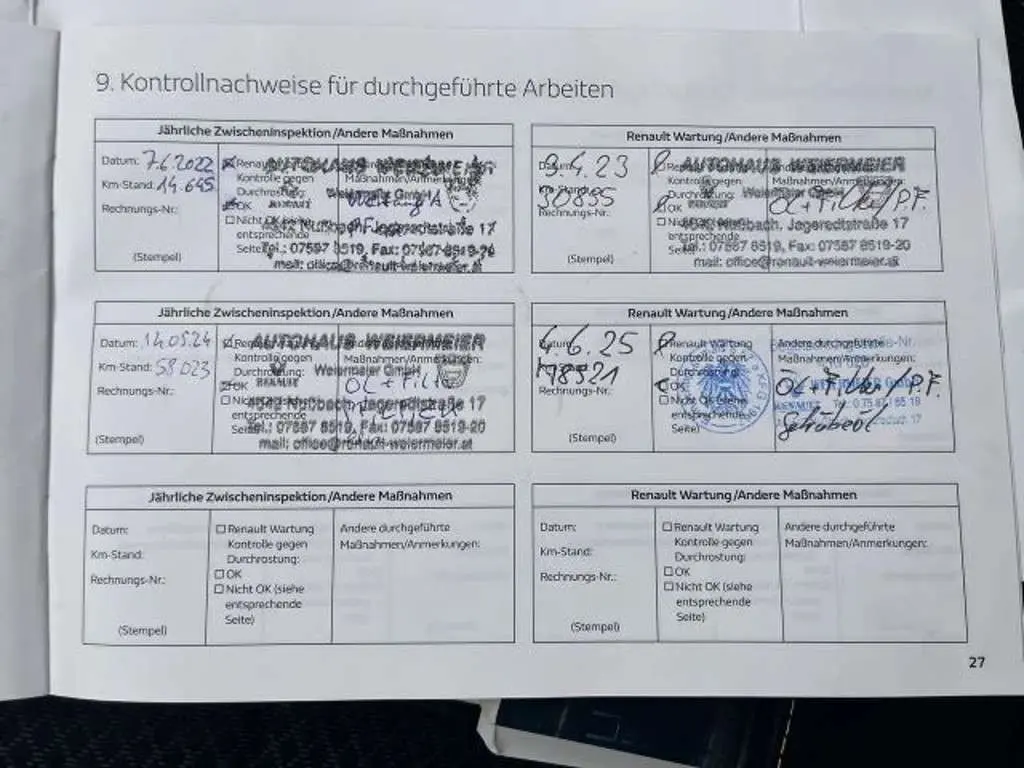 9. Kontrollnachweise für durchgeführte Arbeiten
Jährliche Zwischeninspektion/Andere Maßnahmen
Datum: 7.6.2022
Km-Stand: 14.645
Rechnungs-Nr.:
(Stempel)
Kontrolle gegen
Durchrostung:
OK
Nicht OK (siehe
entsprechende
Seite)
Maßnahmen/Anmerkungen:
AUTOHAUS WEIERMEIER
Weiermeier GmbH
RENAULT
4542 Nußbach, Jageredtstraße 17
Tel.: 07587 8519, Fax: 07587 8519-20
mail: office@renault-weiermeier.at
Renault Wartung/Andere Maßnahmen
Datum:
9.4.23
Km-Stand:
30855
Rechnungs-Nr.:
(Stempel)
Kontrolle gegen
Durchrostung:
OK
Nicht OK (siehe
entsprechende
Maßnahmen/Anmerkungen:
ÖL + Filter/P.F.
AUTOHAUS WEIERMEIER
Weiermeier GmbH
RENAULT
4542 Nußbach, Jageredtstraße 17
Tel.: 07587 8519, Fax: 07587 8519-20
mail: office@renault-weiermeier.at
Jährliche Zwischeninspektion/Andere Maßnahmen
Datum: 14.05.24
Km-Stand: 58023
Rechnungs-Nr.:
(Stempel)
Kontrolle gegen
Durchrostung:
OK
Nicht OK (siehe
entsprechende
Maßnahmen/Anmerkungen:
ÖL + Filter
AUTOHAUS WEIERMEIER
Weiermeier GmbH
RENAULT
4542 Nußbach, Jageredtstraße 17
Tel.: 07587 8519, Fax: 07587 8519-20
mail: office@renault-weiermeier.at
Renault Wartung/Andere Maßnahmen
Datum:
4.6.25
78521
Rechnungs-Nr.:
(Stempel)
Renault Wartung
Kontrolle gegen
Durchrostung:
OK
Nicht OK (siehe
entsprechende
Seite)
Andere durchgeführte
Maßnahmen/Anmerkungen:
ÖL + Filter/P.F.
RENAULT
Getriebeöl
Jährliche Zwischeninspektion/Andere Maßnahmen
Datum:
Km-Stand:
Rechnungs-Nr.:
(Stempel)
Renault Wartung
Kontrolle gegen
Durchrostung:
OK
Nicht OK (siehe
entsprechende
Seite)
Andere durchgeführte
Maßnahmen/Anmerkungen:
Renault Wartung/Andere Maßnahmen
Datum:
Km-Stand:
Rechnungs-Nr.:
(Stempel)
Renault Wartung
Kontrolle gegen
Durchrostung:
OK
Nicht OK (siehe
entsprechende
Seite)
Andere durchgeführte
Maßnahmen/Anmerkungen:
27